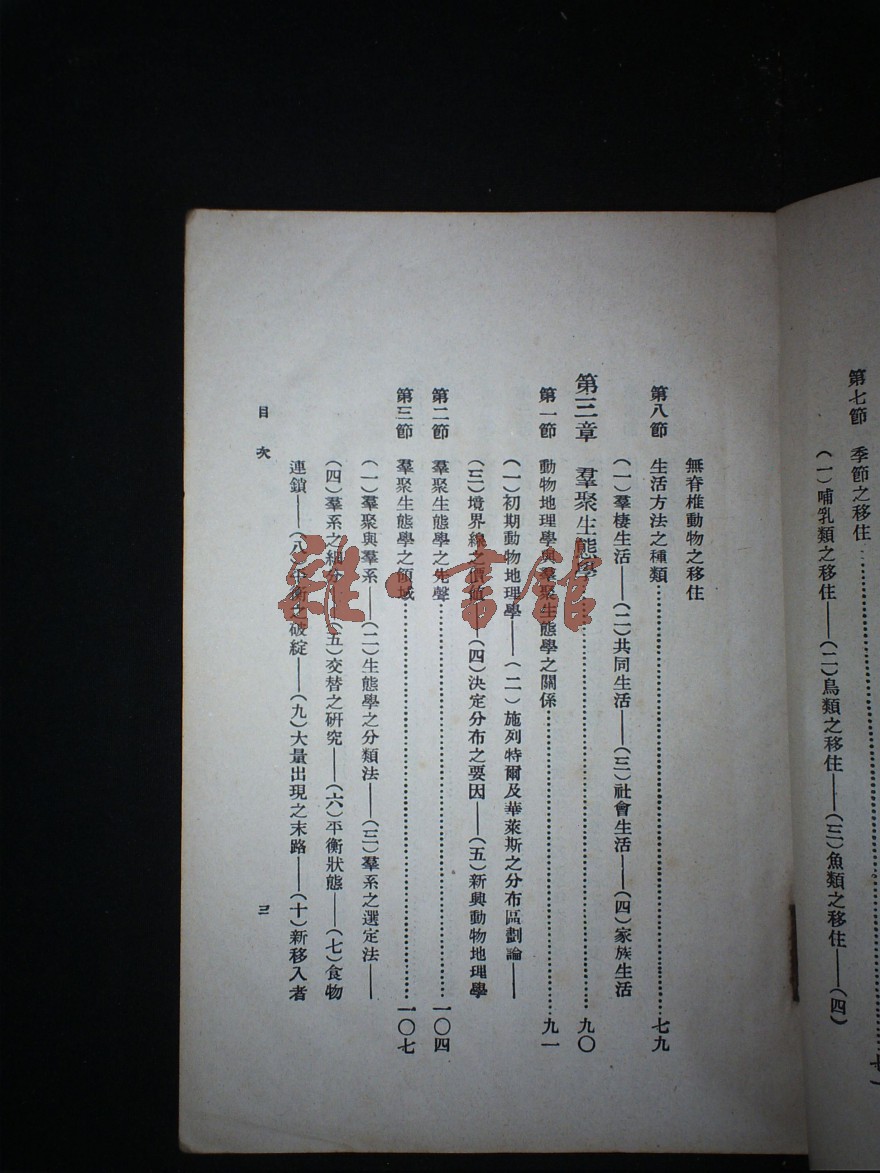 第七節　季節之移住……
（一）哺乳類之移住——（二）鳥類之移住——（三）魚類之移住——（四）
無脊椎動物之移住
第八節　生活方法之種類……七九
（一）羣棲生活——（二）共同生活——（三）社會生活——（四）家族生活
第三章　羣聚生態學……九〇
第一節　動物地理學與羣聚生態學之關係……九一
（一）初期動物地理學——（二）施列特爾及華萊斯之分布區劃論——
（三）境界線之價值——（四）決定分布之要因——（五）新興動物地理學
第二節　羣聚生態學之先聲……一〇四
第三節　羣聚生態學之領域……一〇七
（一）羣聚與羣系——（二）生態學之分類法——（三）羣系之選定法——
（四）羣系之細分——（五）交替之研究——（六）平衡狀態——（七）食物
連鎖——（八）平衡之破綻——（九）大量出現之末路——（十）新移入者
目次
三
雜·書館